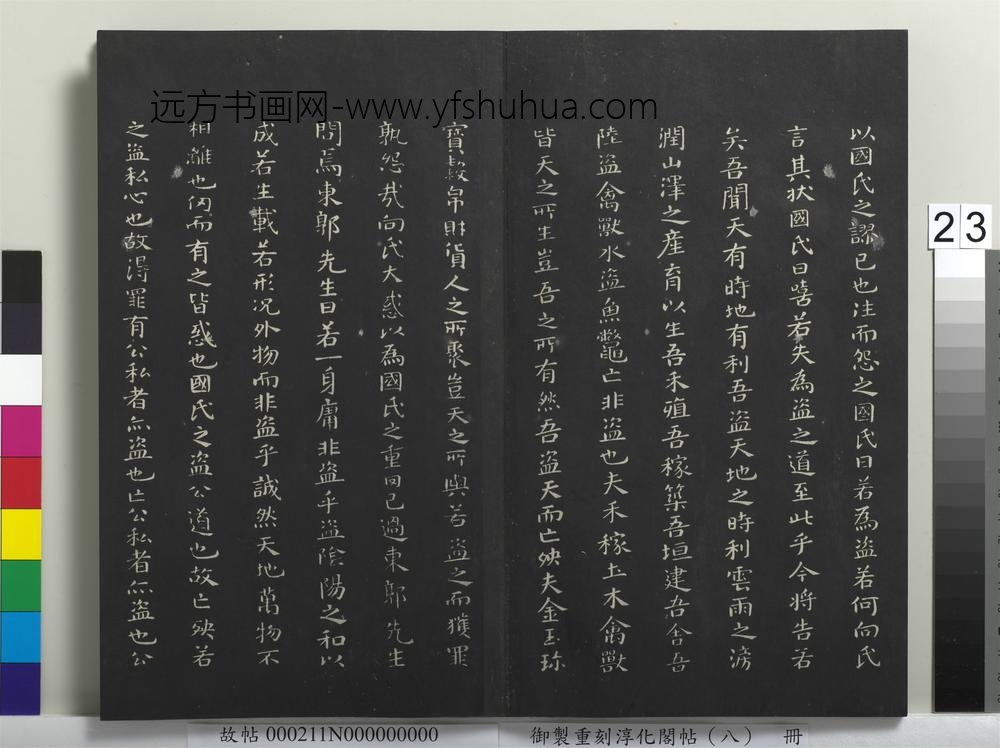 远方书画网-www.yfshuhua.com
以國氏之謬已也注而怨之國氏曰若為盜若何向氏
言其狀國氏曰嘻若失為盜之道至此乎今將告若
矣吾聞天有時地有利吾盜天地之時利雲雨之滂
潤山澤之產育以生吾禾殖吾稼築吾垣建吾舍吾
陸盜禽獸水盜魚鼈亡非盜也夫禾稼土木禽獸
皆天之所生豈吾之所有然吾盜天而亡殃夫金玉珎
寶穀帛財貨人之所聚豈天之所與若盜之而獲罪
孰怨㢤向氏大惑以為國氏之重罔已過東郭先生
問焉東郭先生曰若一身庸非盜乎盜陰陽之和以
成若生載若形况外物而非盜乎誠然天地萬物不
相離也仞而有之皆惑也國氏之盜公道也故亡殃若
之盜私心也故得罪有公私者亦盜也亡公私者亦盜也公
23
故帖 000211N000000000
御製重刻淳化閣帖（八） 冊